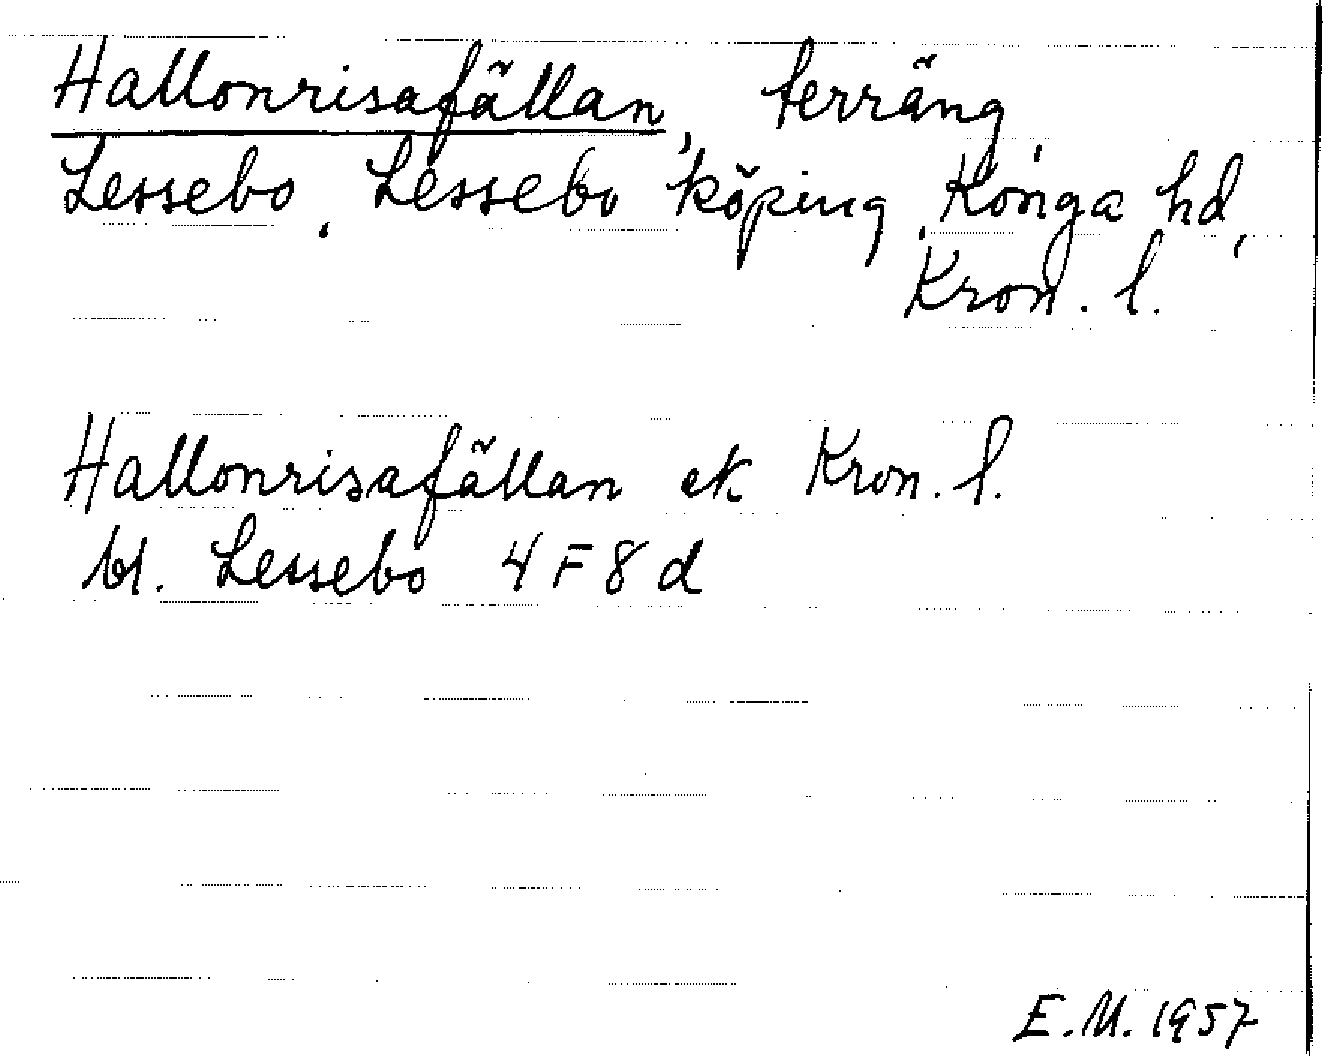 Hallonrisafällan, terräng,
Lessebo, Lessebo köping, Konga hd,
Kron. l.
Hallonrisafällan ek Kron. l.
bl. Lessebo 4 F 8 d
E.M. 1957